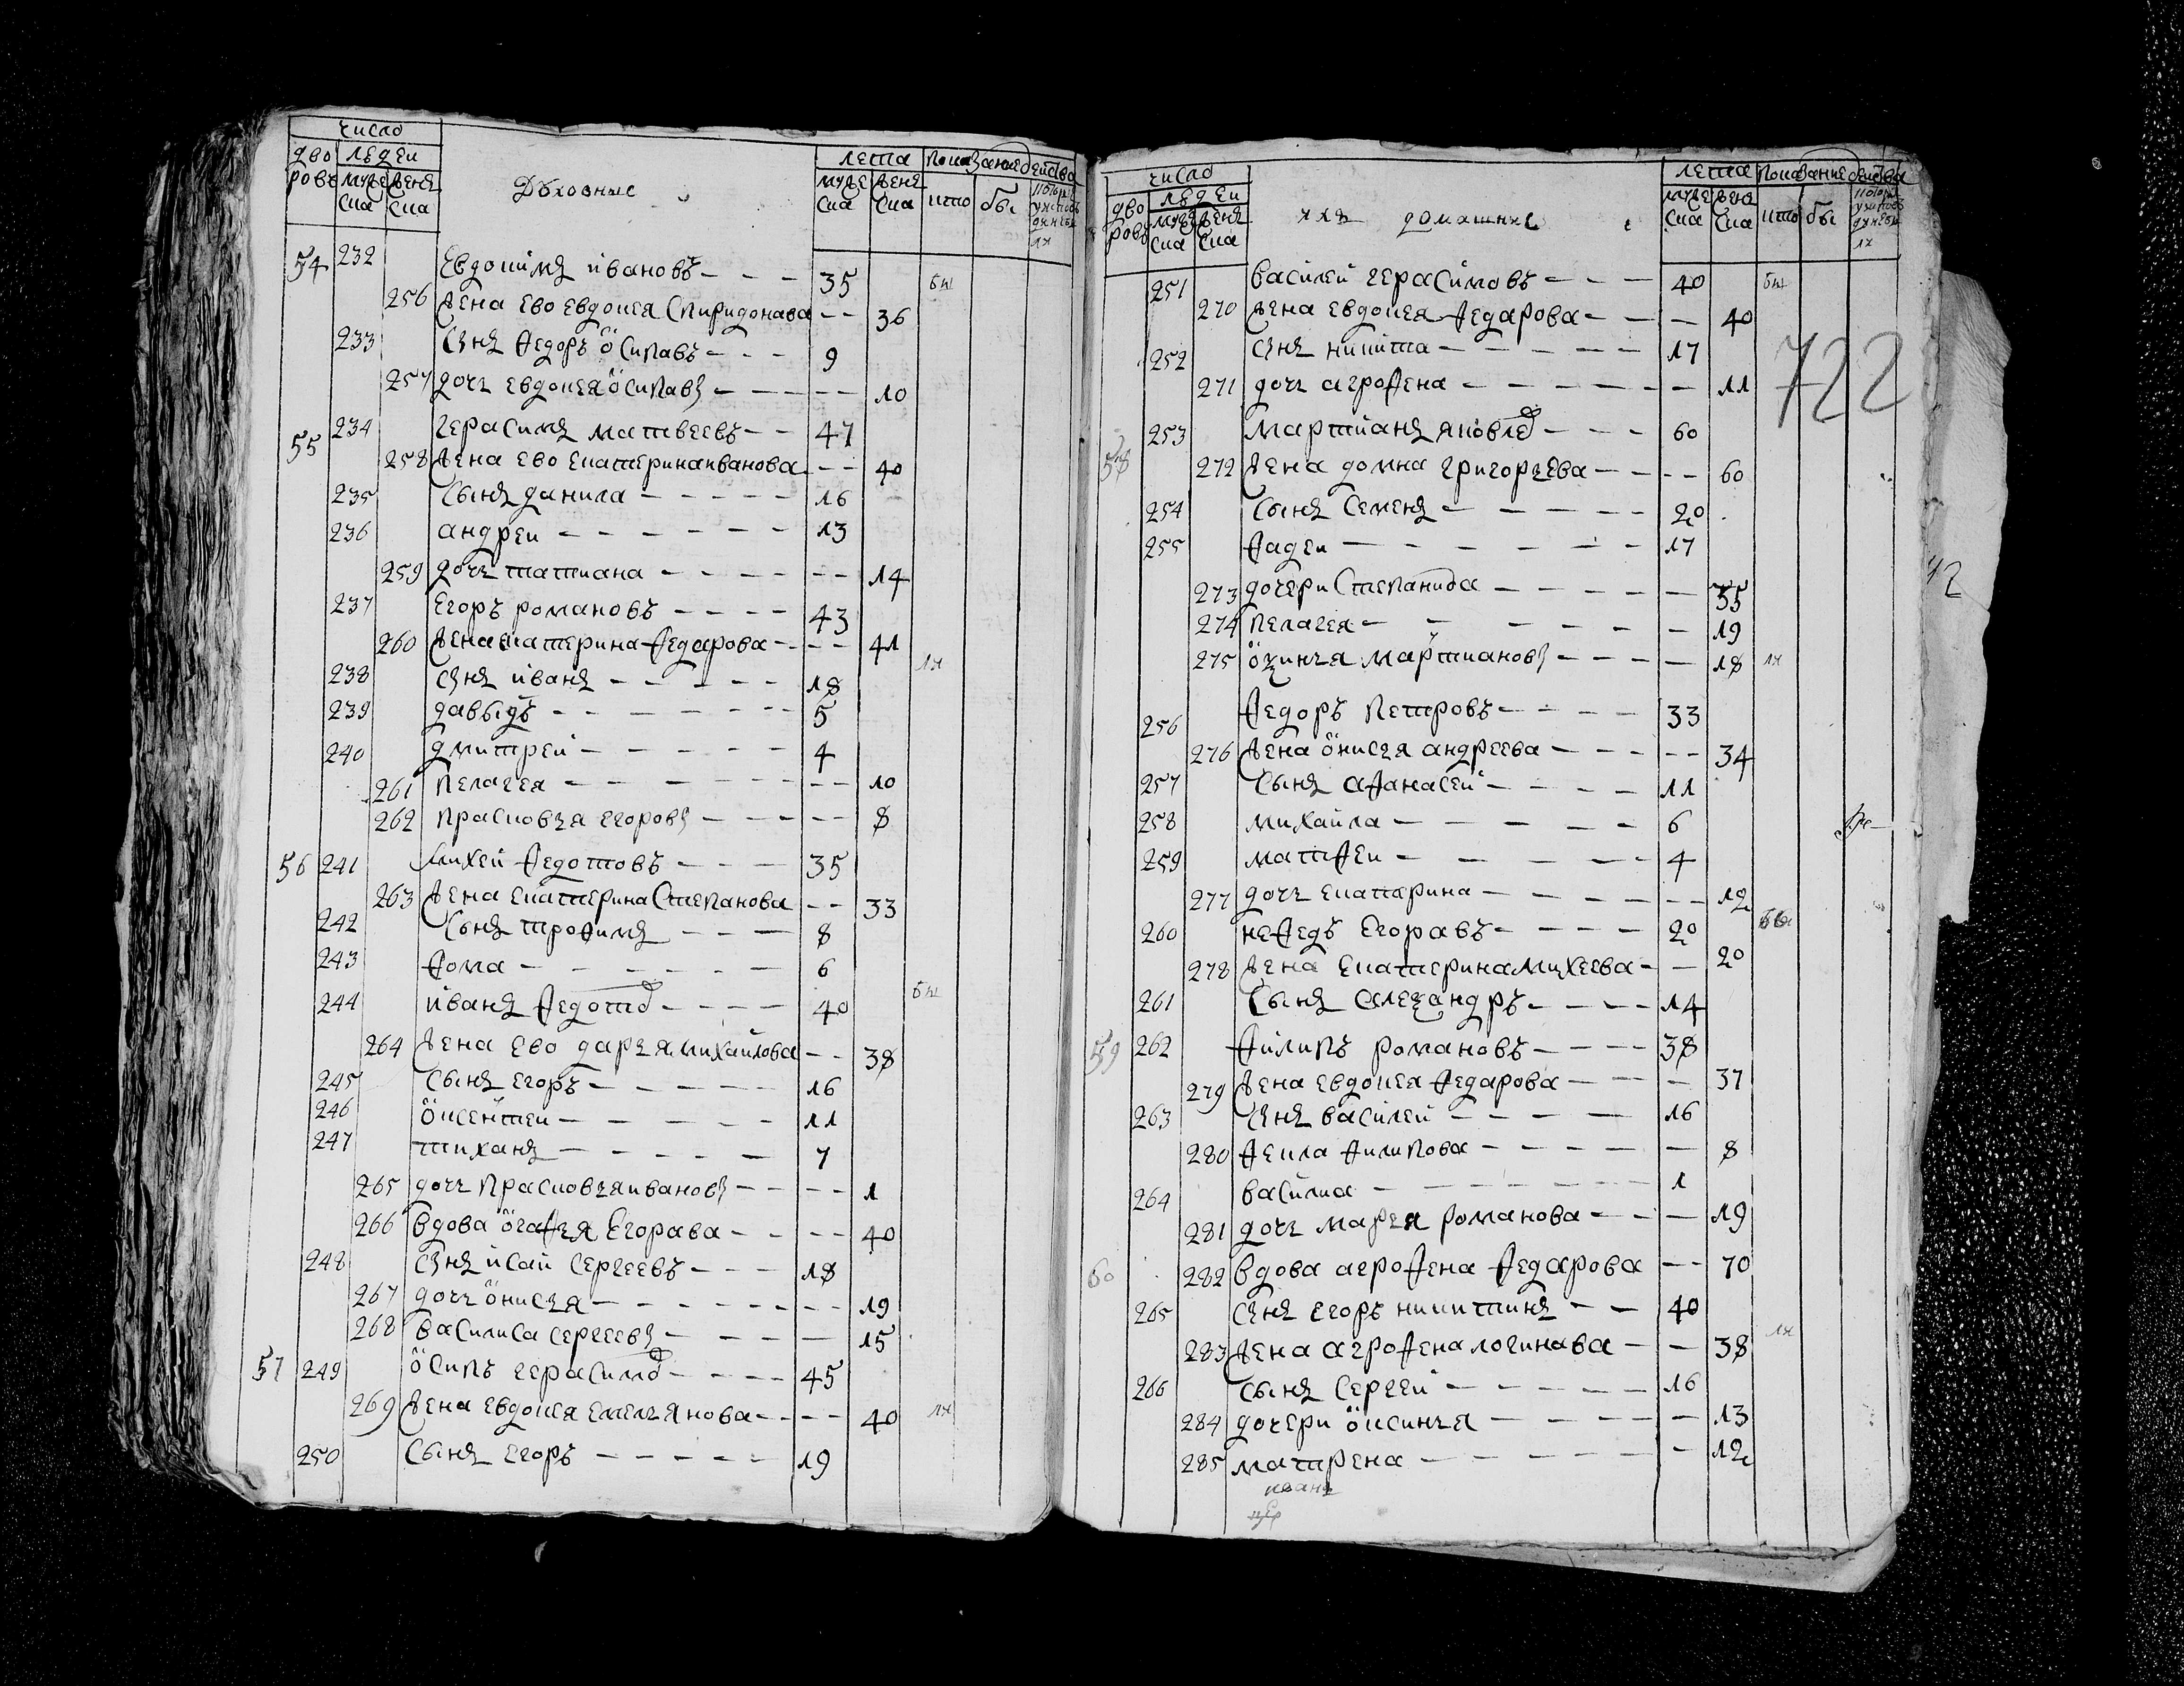 число
дворовъ людей лета Показание действа
мужеска женска Духовные мужеска женска кто бы
54 232 Евдокимъ ивановъ 35 бы
256 жена ево евдокея Спиридонава 36
233 Снъ Ѳедоръ осипавъ 9
257 дочь евдокея осипавы 10
55 234 герасимъ матвеевъ 47
258 жена ево екатерина иванова 40
235 Сынъ данила 16
236 андреи 13
259 дочь татиана 14
237 Егоръ романовъ 43
260 жена катерина Ѳедарова 41
238 Снъ иванъ 18
239 давыдъ 5
240 дмитрей 4
261 пелагея 10
262 прасковья егоровы 8
56 241 михей Ѳедотовъ 35
263 жена екатерина Степанова 33
242 Сынъ троѲимъ 8
243 Ѳома 6
244 иванъ Ѳедотов 40
264 жена ево дарья михаилова 38
245 Сынъ егоръ 16
246 оксентеи 11
247 тиханъ 7
265 дочь прасковья ивановы 1
266 вдова огаѲья Егорава 40
248 Снъ исаи Сергеевъ 18
267 дочь онисья 19
268 василиса сергеевы 15
57 249 осипъ герасимов 45
269 жена евдокея емельянова 40
250 Сынъ егоръ 19
число
дворовъ людей лета Показание действа
мужеска женска ихъ домашние мужеска женска кто бы
251 василеи герасимовъ 40
270 жена евдокея Ѳедарова 40
252 Снъ никита 17
271 дочь агроѲена 11
722
58 253 мартианъ яковлев 60
272 жена домна григорьева 60
254 Сынъ Семенъ 20
255 Ѳадеи 17
273 дочери Степанида 35
274 Пелагея 19
275 оѯинья мартиановы 18
256 Ѳедоръ петровъ 33
276 жена онисья андреева 34
257 Сынъ аѲанасеи 11
258 михаила 6
259 матѲеи 4
277 дочь екатарина 12
260 неѲедъ Егоравъ 20
278 жена екатерина михеева 20
261 Сынъ алеѯандръ 14
59 262 Ѳилипъ романовъ 38
279 жена евдокея Ѳедарова 37
263 Снъ василеи 16
280 Ѳекла Ѳилипова 8
264 1
281 дочь марья романова 19
60 282 вдова агроѲена Ѳедарова 70
265 Снъ егоръ никитинъ 40
283 жена агроѲена логинава 38
266 Сынъ Сергеи 16
284 дочери оксинья 13
285 матрена 12
иванъ